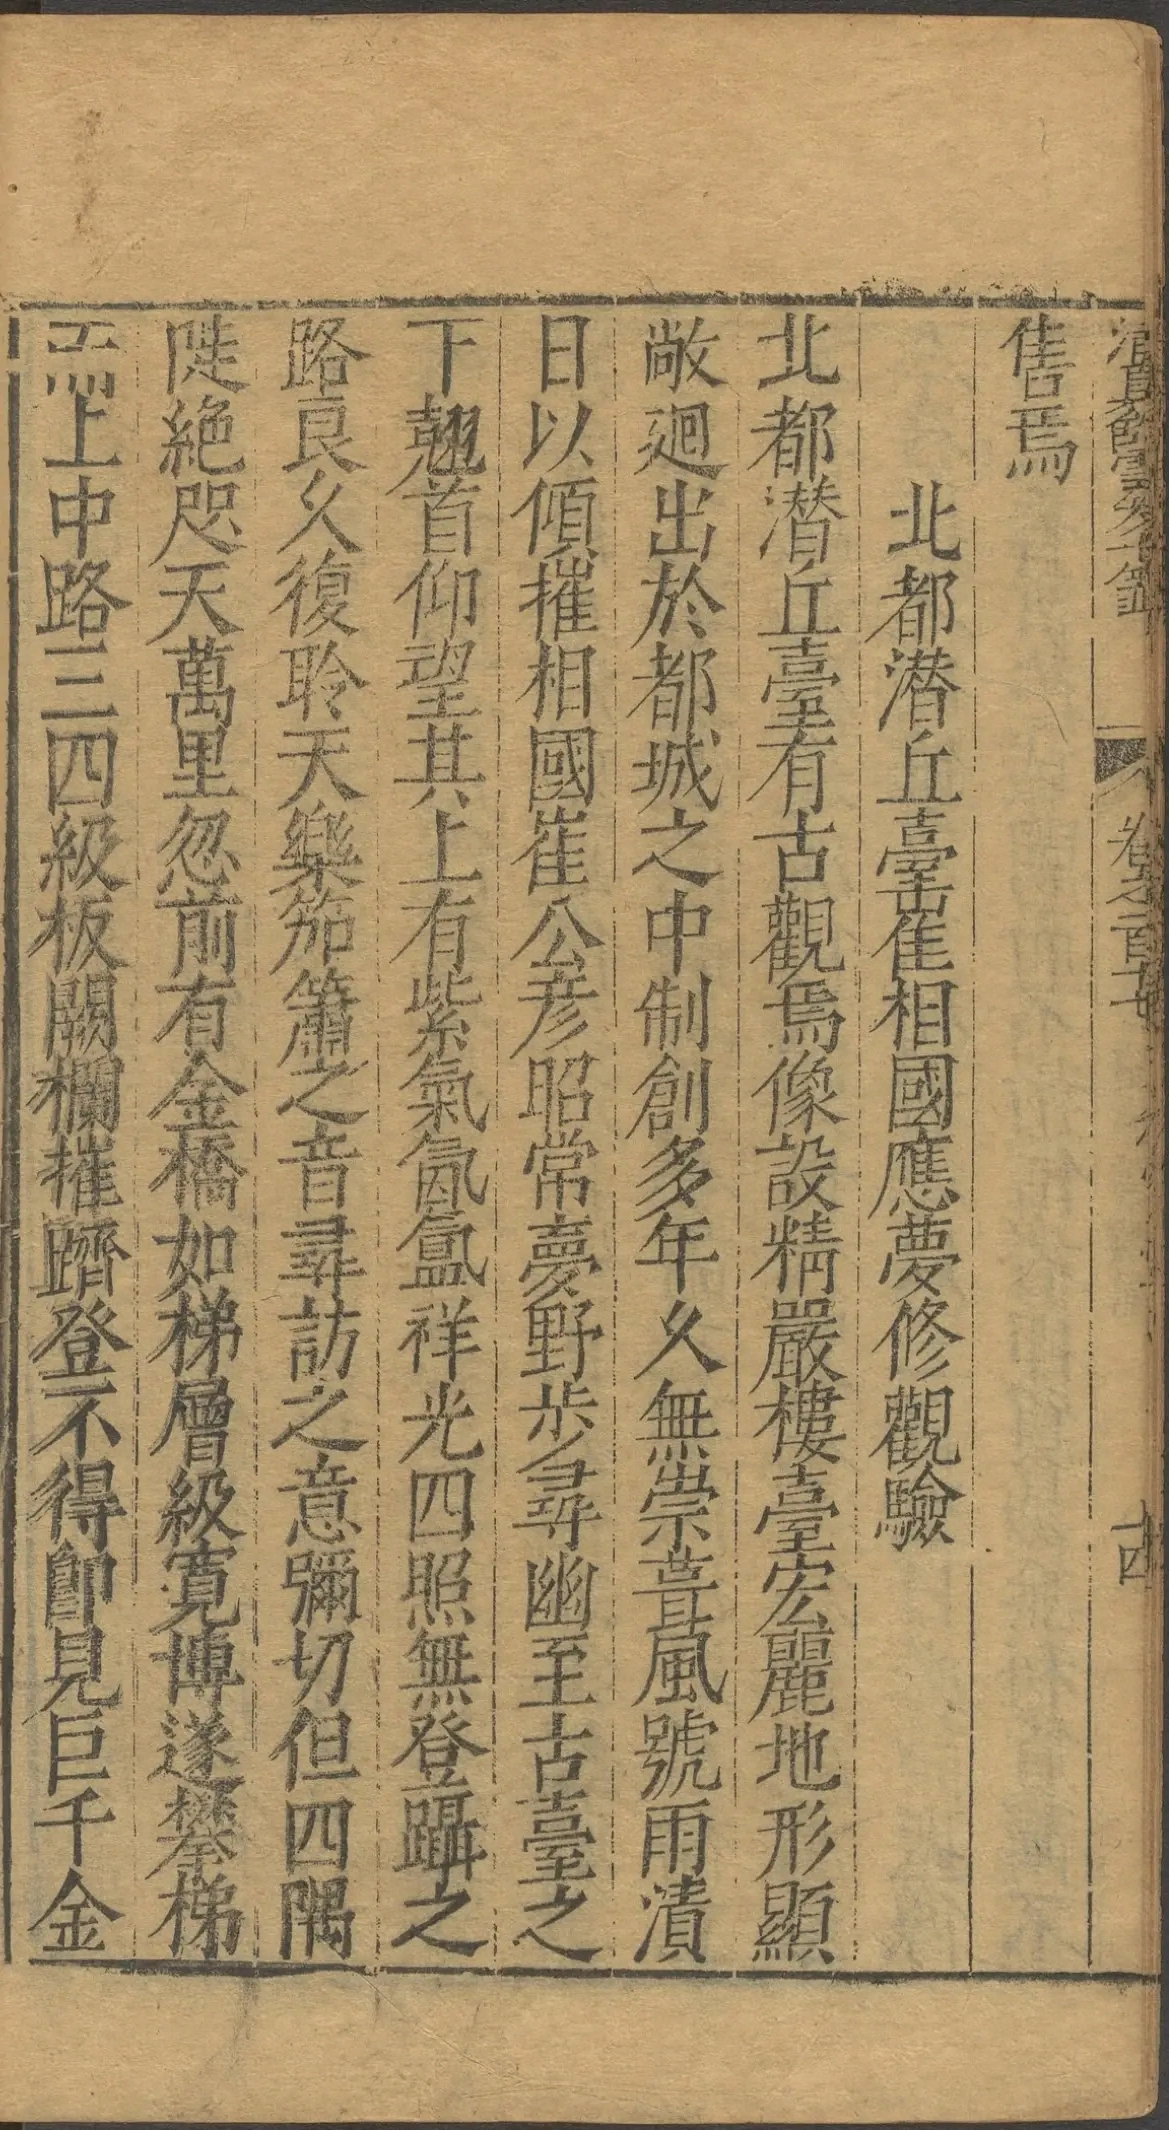 售焉
北都潜丘臺崔相國應夢修觀驗
北都潜丘臺有古觀焉像設精嚴樓臺宏麗地形顯
敞迴出於都城之中制創多年久無崇葺風號雨漬
日以傾摧相國崔公彥昭常夢野步尋幽至古臺之
下翹首仰望其上有紫氣氤氳祥光四照無登躡之
路良久復聆天樂笳簫之音尋訪之意彌切但四隅
陡絶咫天萬里忽前有金橋如梯層級寬博遂攀梯
而上中路三四級板闕欄摧躋登不得即見巨千金
卷之
十四